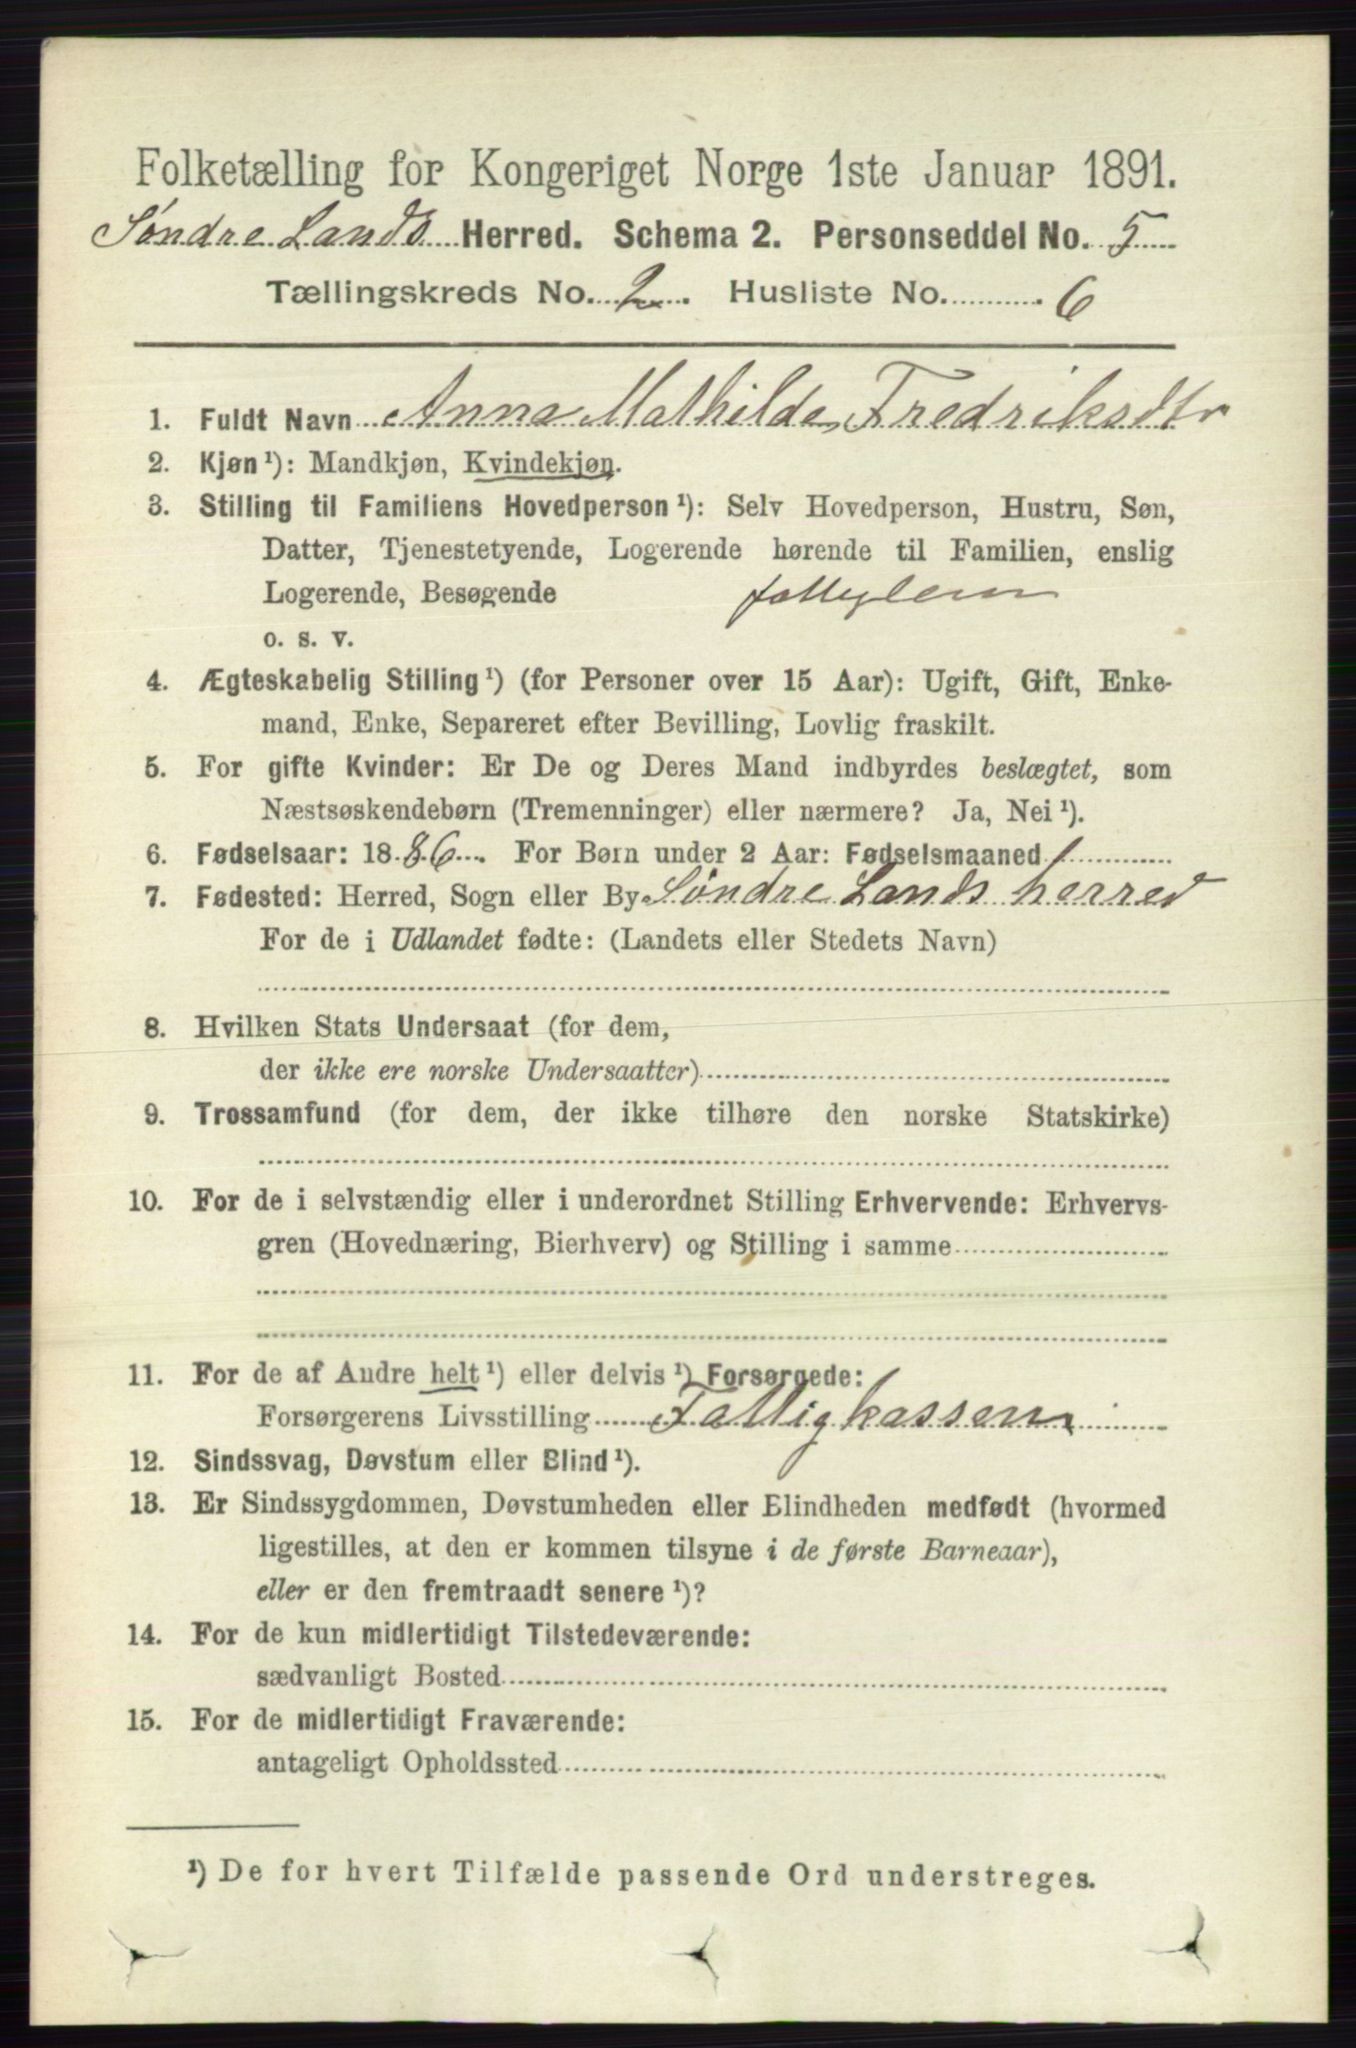 Folketælling for Kongeriget Norge 1ste Januar 1891.
Søndre Lands Herred. Schema 2. Personseddel No. 5
Tællingskreds No. 2. Husliste No. 6
1. Fuldt Navn Anna Mathilde Fredriksdtr
2. Kjøn¹): Mandkjøn, Kvindekjøn.
3. Stilling til Familiens Hovedperson¹): Selv Hovedperson, Hustru, Søn,
Datter, Tjenestetyende, Logerende hørende til Familien, enslig
Logerende, Besøgende fattiglem
o. s. v.
4. Ægteskabelig Stilling¹) (for Personer over 15 Aar): Ugift, Gift, Enke-
mand, Enke, Separeret efter Bevilling, Lovlig fraskilt.
5. For gifte Kvinder: Er De og Deres Mand indbyrdes beslægtet, som
Næstsøskendebørn (Tremenninger) eller nærmere? Ja, Nei¹).
6. Fødselsaar: 1886. For Børn under 2 Aar: Fødselsmaaned
7. Fødested: Herred, Sogn eller By Søndre Lands herred
For de i Udlandet fødte: (Landets eller Stedets Navn)
8. Hvilken Stats Undersaat (for dem,
der ikke ere norske Undersaatter)
9. Trossamfund (for dem, der ikke tilhøre den norske Statskirke)
10. For de i selvstændig eller i underordnet Stilling Erhvervende: Erhvervs-
gren (Hovednæring, Bierhverv) og Stilling i samme
11. For de af Andre helt¹) eller delvis¹) Forsørgede:
Forsørgerens Livsstilling Fattigkassen
12. Sindssvag, Døvstum eller Blind¹).
13. Er Sindssygdommen, Døvstumheden eller Blindheden medfødt (hvormed
ligestilles, at den er kommen tilsyne i de første Barneaar),
eller er den fremtraadt senere¹)?
14. For de kun midlertidigt Tilstedeværende:
sædvanligt Bosted
15. For de midlertidigt Fraværende:
antageligt Opholdssted
¹) De for hvert Tilfælde passende Ord understreges.